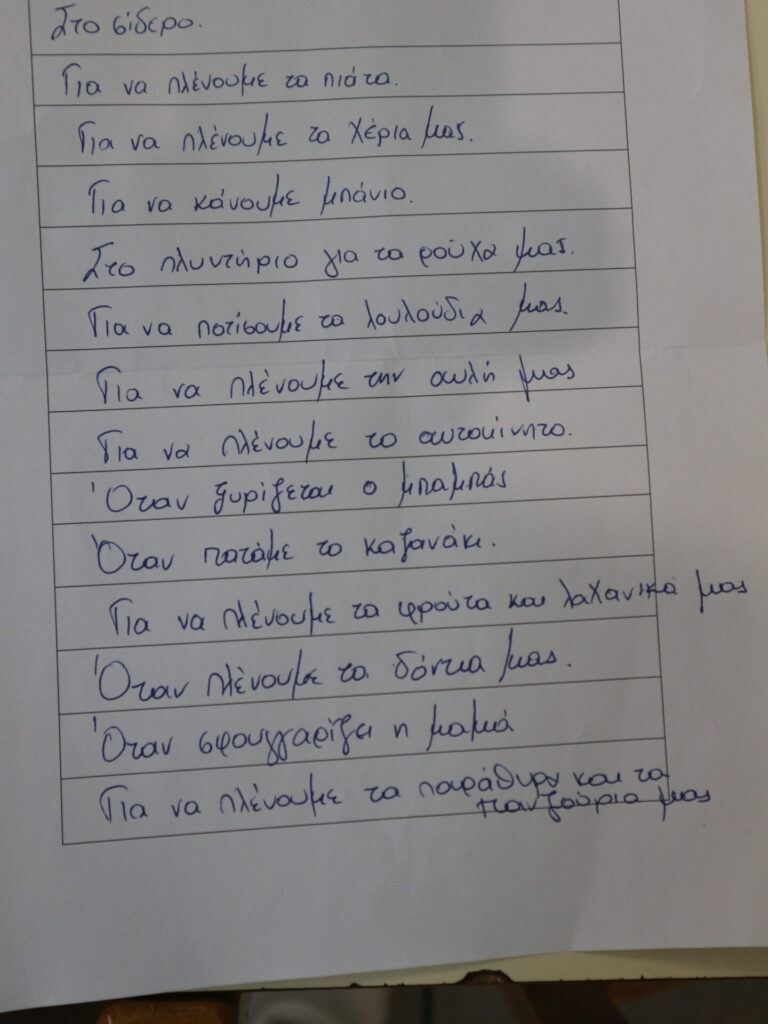 Στο σίδερο.
Για να πλένουμε τα πιάτα.
Για να πλένουμε τα χέρια μας.
Για να κάνουμε μπάνιο.
Στο πλυντήριο για τα ρούχα μας.
Για να ποτίσουμε τα λουλούδια μας.
Για να πλένουμε την αυλή μας
Για να πλένουμε το αυτοκίνητο.
Όταν ξυρίζεται ο μπαμπάς
Όταν πατάμε το καζανάκι.
Για να πλένουμε τα φρούτα και λαχανικά μας
Όταν πλένουμε τα δόντια μας.
Όταν σφουγγαρίζει η μαμά
Για να πλένουμε τα παράθυρα και τα
παντζούρια μας